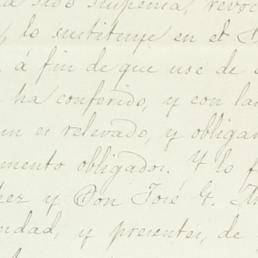 sido suspensa, revoc
, lo sustituye en el
á fin de que use de
ha conferido, y con la
es relevado, y obliga
mento obligados. Y lo f
y Don José G.
ndad, y presentes, de